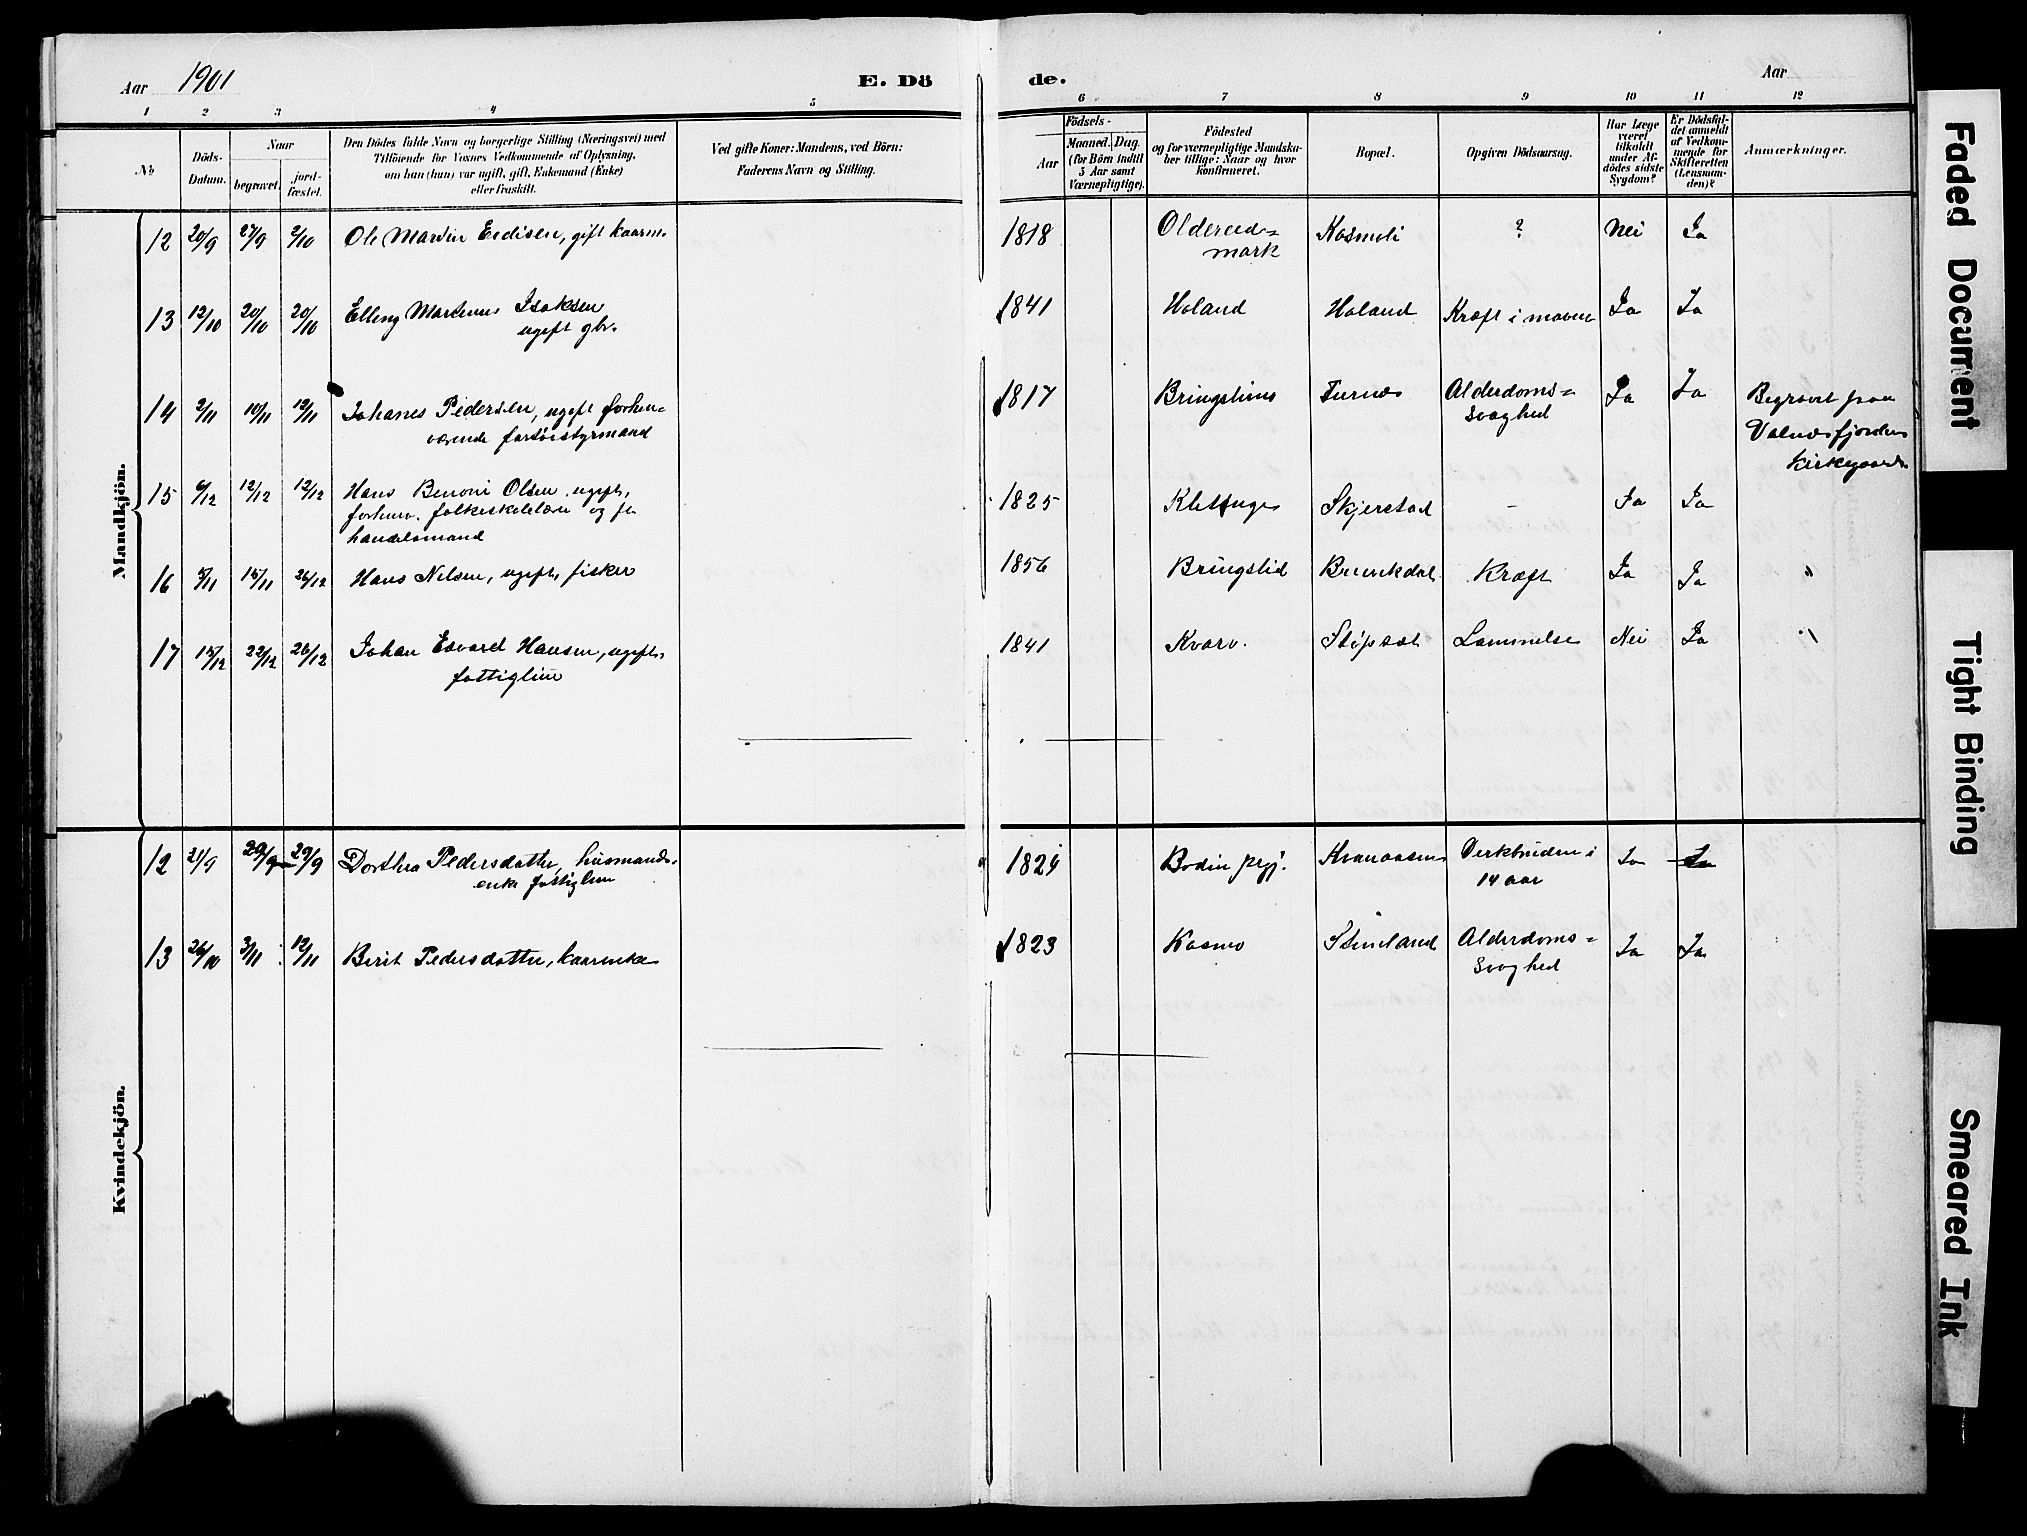 Aar 1901
E. Dö
de.
Aar
1 2 3 4 5 6 7 8 9 10 11 12
No
Döds-Datum.
Naar
begravet.
jord-fæstet.
Den Dödes fulde Navn og borgerlige Stilling (Næringsvei) med
Tilföiende for Voxnes Vedkommende af Oplysning,
om han (hun) var ugift, gift, Enkemand (Enke)
eller fraskilt.
Ved gifte Koner: Mandens, ved Börn:
Faderens Navn og Stilling.
Födsels-
Aar
Maaned. Dag.
(for Börn indtil
5 Aar samt
Værnepligtige).
Födested
og for værnepligtige Mandska-
ber tillige: Naar og hvor
konfirmeret.
Bopæl.
Opgiven Dödsaarsag.
Har Læge
været
tilkaldt
under Af-
dödes sidste
Sygdom?
Er Dödsfal-
det anmeldt
af Vedkom-
mende for
Skifteretten
(Lensman-
den)?
Anmærkninger.
Mandkjön.
12 20/9 27/9 2/10 Ole Martin Endisen, gift kaarm. 1818 Oldereid= Kosmoli ? Nei Ja
mark
13 12/10 20/10 20/10 Elling Martinus Isaksen 1841 Holand Holand Kræft i maven Ja Ja
ugift gbr.
14 2/11 10/11 12/11 Johanes Pedersen, ugift forhen- 1817 Bringslims Furnes Alderdoms= Ja Ja Begravet paa
værende fartøistyrmand svaghed Valnesfjordens
kirkegaard
15 6/12 12/12 12/12 Hans Benoni Olsen, ugift, 1825 Skjerstad - Ja Ja
forhenv. folkeskolelærer og fh
handelsmand
16 5/11 15/11 26/12 Hans Nilsen, ugift, fisker 1856 Bringslid Kræft Ja Ja "
17 15/12 22/12 26/12 Johan Edvard Hansen, ugift, 1841 Kvarv. Støpset Lammelse Nei Ja "
fattiglem
Kvindekjön.
12 21/9 29/9 29/9 Dorthea Pedersdatter, husmands- Bodin prgj. Kvanaasen Verkbruden i Ja Ja
enke fattiglem 14 aar
13 26/10 3/11 12/11 Berit Pedersdatter, kaarenke 1823 Kosmo Alderdoms= Ja Ja
svaghed
Faded Document
Tight Binding
Smeared Ink